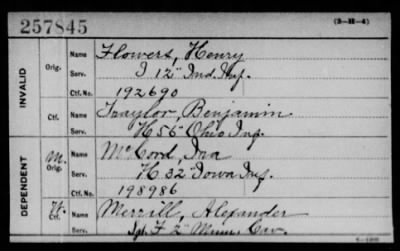 257845
(3-H-4)
INVALID
Orig.
Name Flowers, Henry
Serv. I 12" Ind. Inf.
Ctf. No. 192690
Ctf.
Name Traylor, Benjamin
Serv. H 55" Ohio Inf.
DEPENDENT
M. Orig.
Name McCord, Ina
Serv. H 32" Iowa Inf.
Ctf. No. 198986
W. Ctf.
Name Merrill, Alexander
Serv. Sgt. F 2" Minn. Cav.